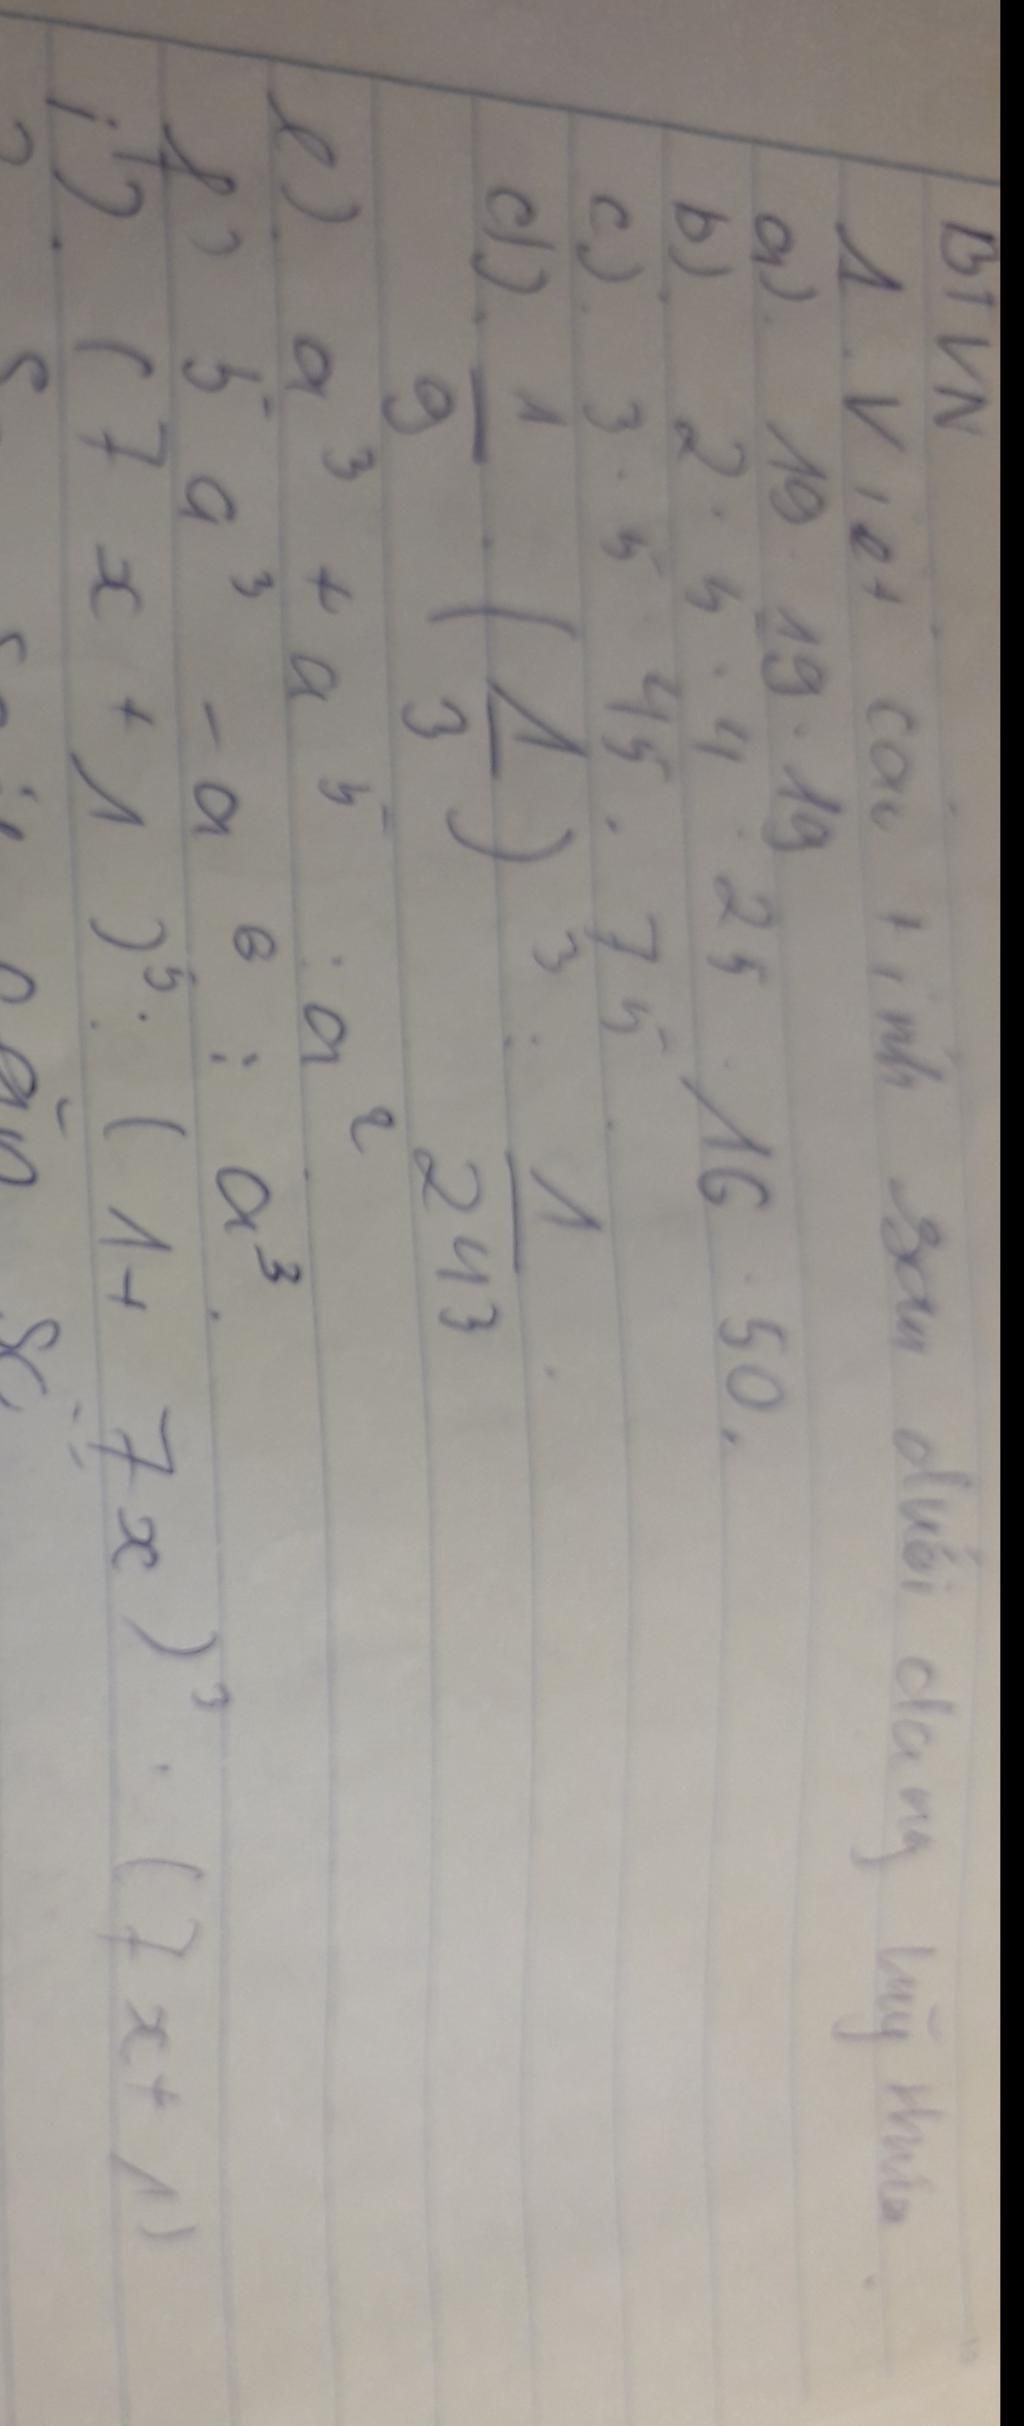 BTVN
1. Viết các tính sau dưới dạng luỹ thừa.
a). 19 . 19 . 19
b). 2 . 5 . 4 . 25 . 16 . 50.
c). 3 . 5 . 45 . 75 .
d). 1/9 . (1/3)³ : 1/243 .
e) a³ + a⁵ : a²
f) 5a³ - a⁶ : a³.
i). (7x + 1)⁵ : (1 + 7x)³ . (7x + 1)